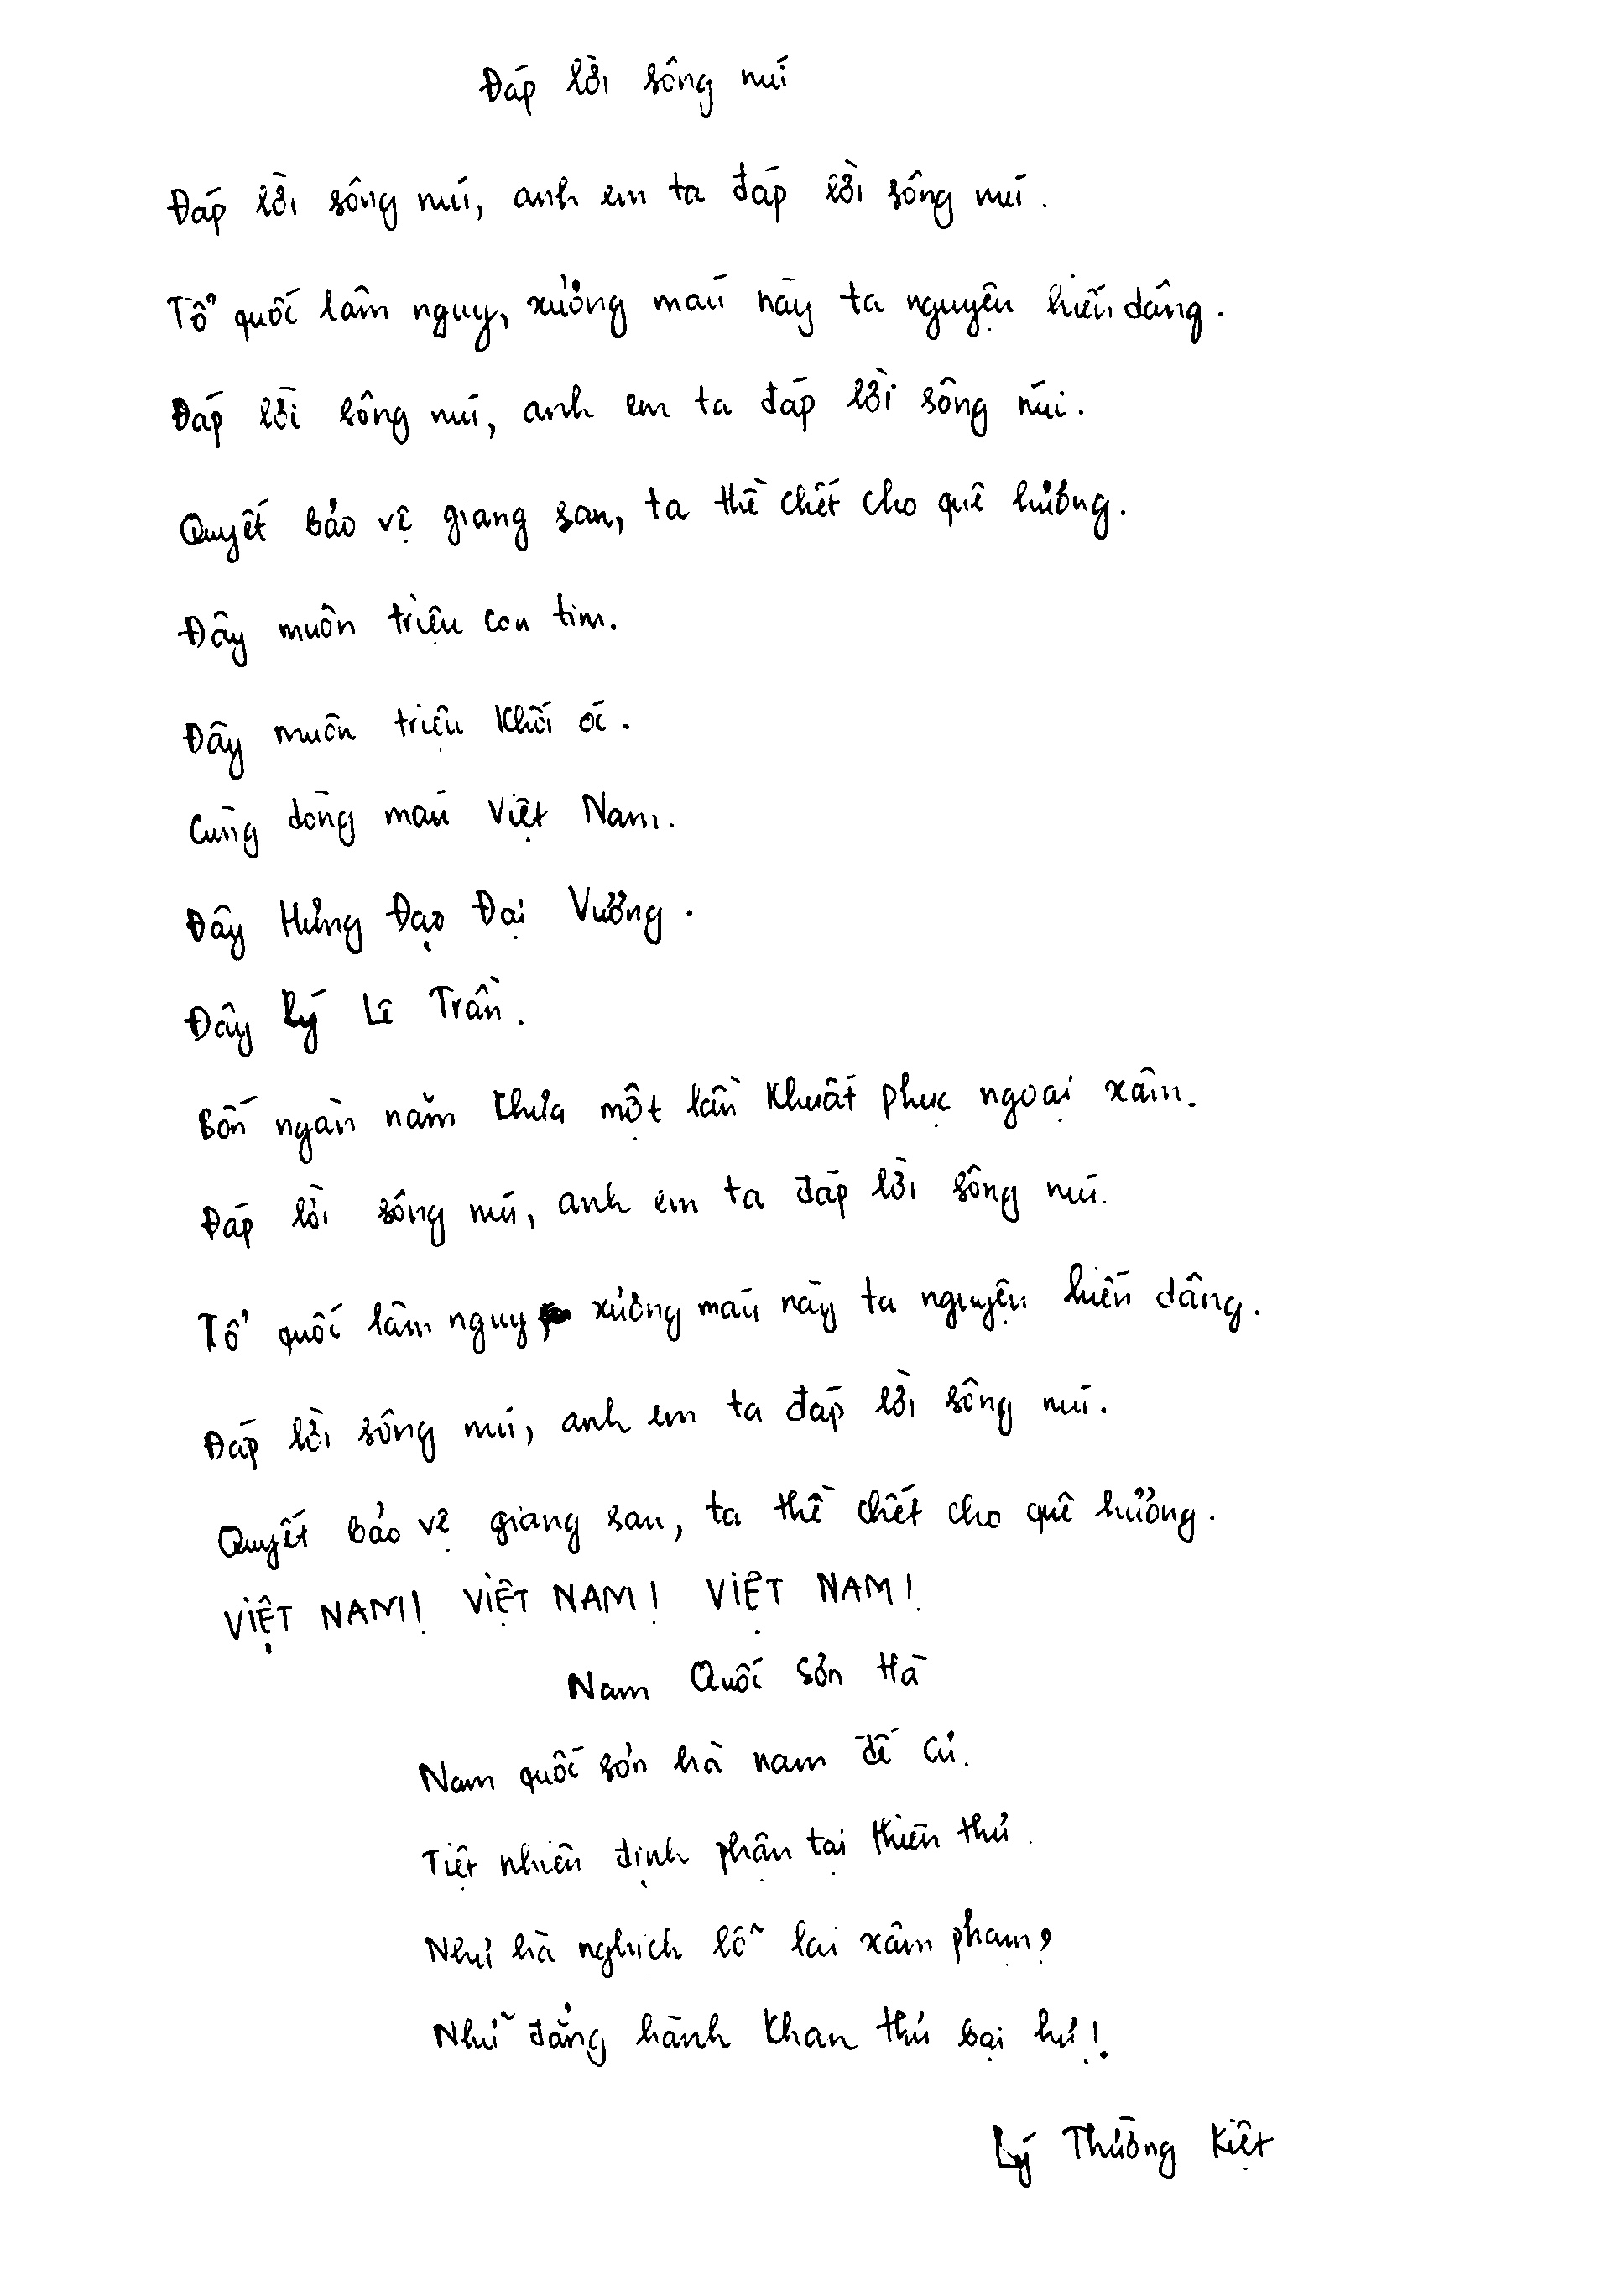 Đáp lời sông núi
Đáp lời sông núi, anh em ta đáp lời sông núi.
Tổ quốc lâm nguy, xương máu này ta nguyện hiến dâng.
Đáp lời sông núi, anh em ta đáp lời sông núi.
Quyết bảo vệ giang san, ta thề chết cho quê hương.
Đây muôn triệu con tim.
Đây muôn triệu khối óc.
Cùng dòng máu Việt Nam.
Đây Hưng Đạo Đại Vương.
Đây Lý Lê Trần.
Bốn ngàn năm chưa một lần khuất phục ngoại xâm.
Đáp lời sông núi, anh em ta đáp lời sông núi.
Tổ quốc lâm nguy xương máu này ta nguyện hiến dâng.
Đáp lời sông núi, anh em ta đáp lời sông núi.
Quyết bảo vệ giang san, ta thề chết cho quê hương.
VIỆT NAM! VIỆT NAM! VIỆT NAM!
Nam Quốc Sơn Hà
Nam quốc sơn hà nam đế cư.
Tiệt nhiên định phận tại thiên thư.
Như hà nghịch lỗ lai xâm phạm,
Nhữ đẳng hành khan thủ bại hư!
Lý Thường Kiệt